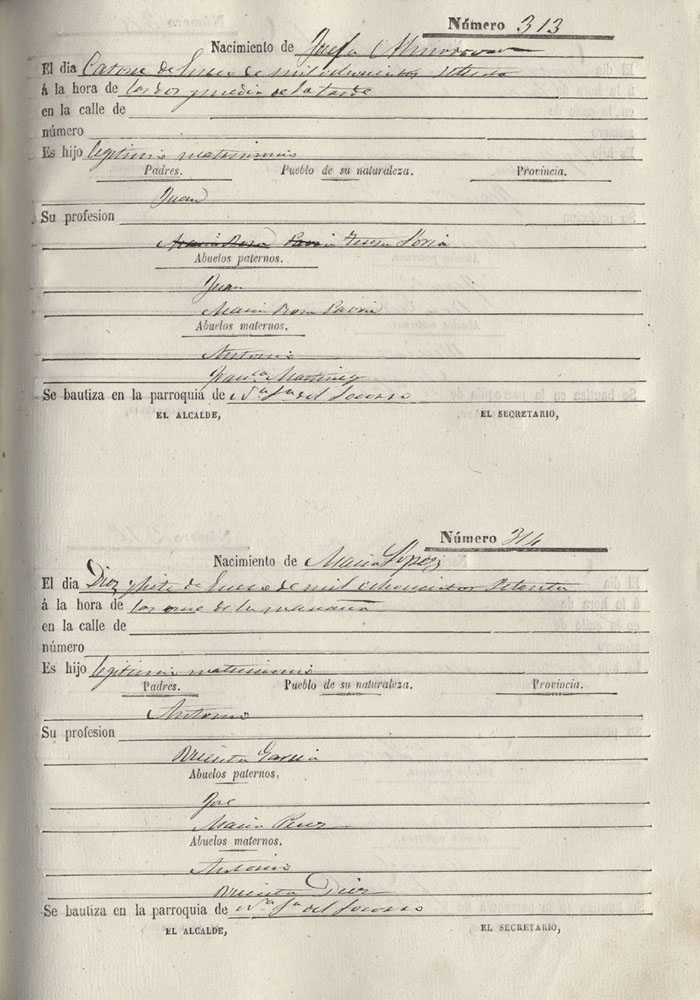 Número 313
Nacimiento de Josefa
El dia Catorce de Enero de mil ochocientos setenta
á la hora de las dos y media de la tarde
en la calle de
número
Es hijo legitimo matrimonio
Padres. Pueblo de su naturaleza. Provincia.
Juan
Su profesion
Maria Rosa Pavia Teresa Soria
Abuelos paternos.
Juan
Maria Rosa Pavia
Abuelos maternos.
Antonio
Franca Martinez
Se bautiza en la parroquia de Na Sa del Socorro
EL ALCALDE, EL SECRETARIO,
Número 314
Nacimiento de Maria Lopez
El dia Diez y siete de Enero de mil ochocientos setenta
á la hora de las once de la mañana
en la calle de
número
Es hijo legitimo matrimonio
Padres. Pueblo de su naturaleza. Provincia.
Antonio
Su profesion
Vicenta Garcia
Abuelos paternos.
José
Maria Perez
Abuelos maternos.
Antonio
Vicenta Diez
Se bautiza en la parroquia de Na Sa del Socorro
EL ALCALDE, EL SECRETARIO,